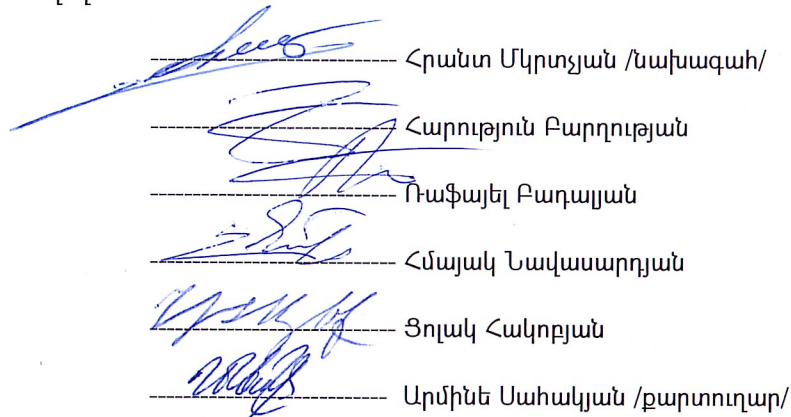 Հրանտ Մկրտչյան /նախագահ/
Հարություն Բարղության
Ռաֆայել Բադալյան
Հմայակ Նավասարդյան
Ցոլակ Հակոբյան
Արմինե Սահակյան /քարտուղար/